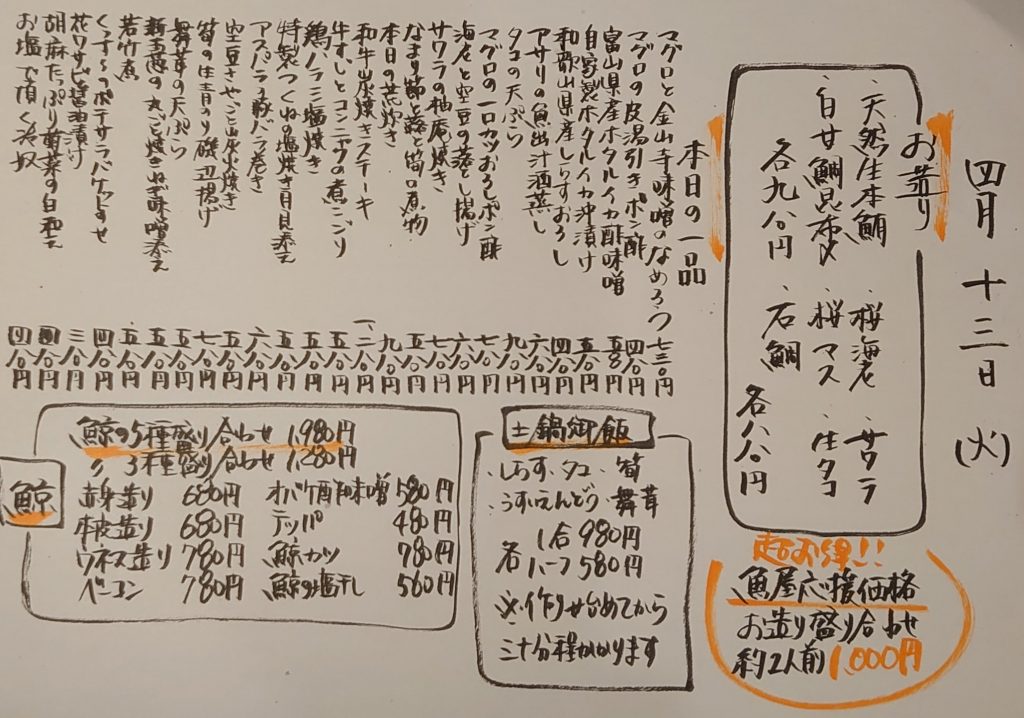 四月 十三日 (火)
お造り
・天然生本鮪 ・桜海老 ・サワラ
・白甘鯛昆布〆 ・桜マス ・生タコ
各九八〇円 ・石鯛 各八八〇円
本日の一品
マグロと金山寺味噌のなめろう 七三〇円
マグロの皮湯引きポン酢 四八〇円
富山県産ホタルイカ酢味噌 五八〇円
自家製ホタルイカ沖漬け 五八〇円
和歌山県産しらすおろし 四八〇円
アサリの魚出汁酒蒸し 六八〇円
タコの天ぷら 九八〇円
マグロの一口カツおろしポン酢 七八〇円
海老と空豆の落とし揚げ 六八〇円
サワラの柚庵焼き 七八〇円
なまり節と蕗と筍の煮物 五八〇円
本日の荒炊き 九八〇円
和牛炭焼きステーキ 一、二八〇円
牛すじとコンニャクの煮こごり 五八〇円
鶏ハラミ塩焼き 五八〇円
特製つくねの塩焼き月見添え 五八〇円
アスパラの豚バラ巻き 六八〇円
空豆さやごと炭火焼き 五八〇円
筍の生青のり磯辺揚げ 七八〇円
舞茸の天ぷら 五八〇円
新玉葱の丸ごと焼きねぎ味噌添え 五八〇円
若竹煮 五八〇円
ポテサラバケット乗せ 四八〇円
花ワサビ醤油漬け 三八〇円
胡麻たっぷり菊菜の白和え 四八〇円
お塩で頂く冷奴 四八〇円
超お得!!
魚屋応援価格
お造り盛り合わせ
約2人前 1,000円
土鍋御飯
・しらす・タコ・筍
・うすいえんどう・舞茸
各 1合 980円
ハーフ 580円
※作り始めてから
三十分程かかります
鯨
鯨の5種盛り合わせ 1,980円
〃 3種盛り合わせ 1,280円
赤身造り 680円 オバケ酢味噌 580円
本皮造り 680円 テッパ 480円
ウネス造り 780円 鯨カツ 780円
ベーコン 780円 鯨の塩干し 560円